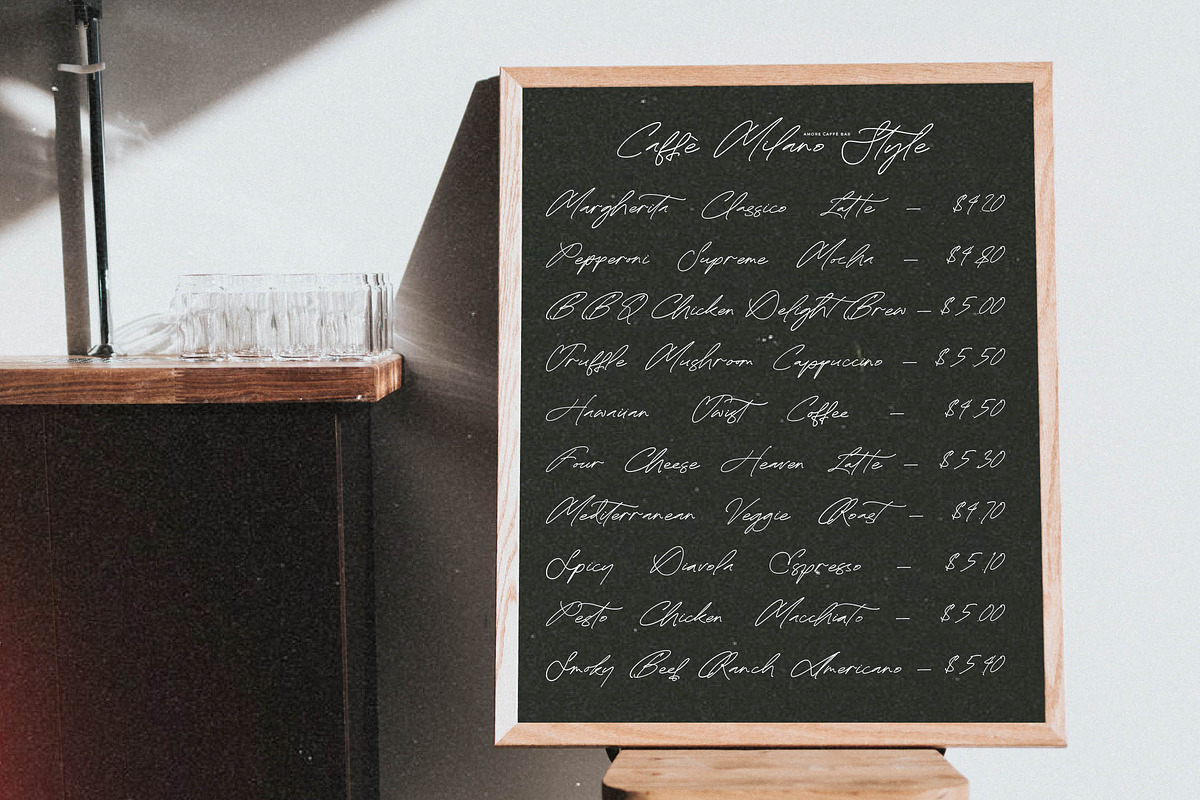 AMORE CAFFÈ BAR
Caffè Milano Style
Margherita Classico Latte – $4.20
Pepperoni Supreme Mocha – $4.80
BBQ Chicken Delight Brew – $5.00
Truffle Mushroom Cappuccino – $5.50
Hawaiian Twist Coffee – $4.50
Four Cheese Heaven Latte – $5.30
Mediterranean Veggie Roast – $4.70
Spicy Diavola Espresso – $5.10
Pesto Chicken Macchiato – $5.00
Smoky Beef Ranch Americano – $5.40